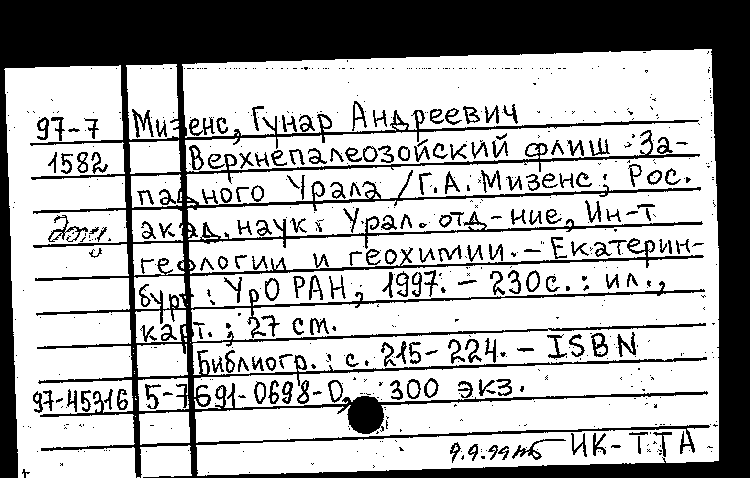 97-7 Мизенс, Гунар Андреевич
1582 Верхнепалеозойский флиш За-
падного Урала / Г.А. Мизенс; Рос.
акад. наук. Урал. отд-ние, Ин-т
геологии и геохимии. - Екатерин-
бург : УрО РАН, 1997. - 230 с. : ил.,
карт. ; 27 см.
Библиогр.: с. 215-224. - ISBN
97-45316 5-7691-0698-0, 300 экз.
ИК-ТТА